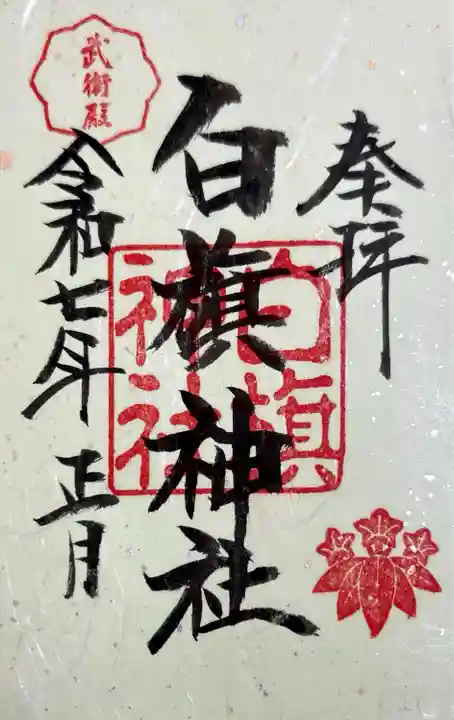 奉拝
白旗神社
白旗神社
令和七年 正月
武衛殿